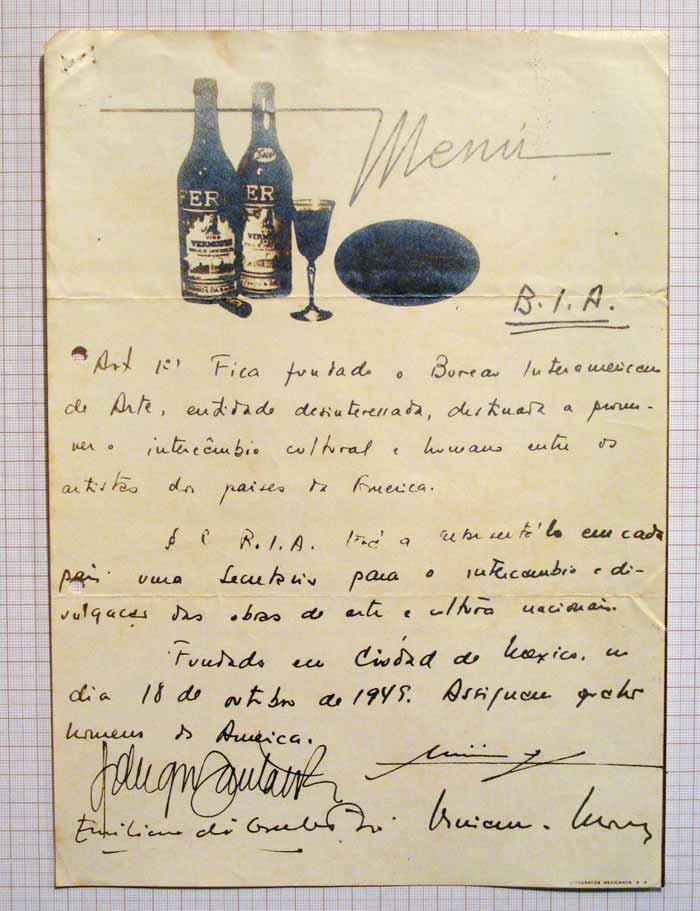 Menú
FER
ER
VERMOUTH
B.I.A.
Art 1º Fica fundado o Bureau Interamericano
de Arte, entidade desinteressada, destinada a promo-
ver o intercâmbio cultural e humano entre os
artistas dos paises da America.
§ O B.I.A. terá a em cada
país uma Secretaria para o intercambio e di-
vulgação das obras de arte e cultura nacionais.
Fundado em Ciudad de Mexico, no
dia 18 de outubro de 1945. Assignam quatro
homens da America.
Emiliano di